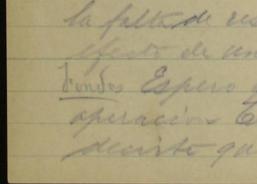 la falta de res
efecto de un
fondos Espero
operación
decirte qu